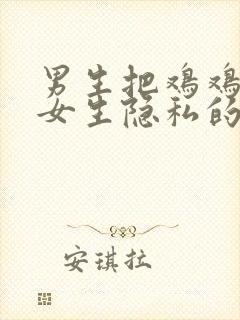 男生把鸡鸡
女生隐私的
安琪拉